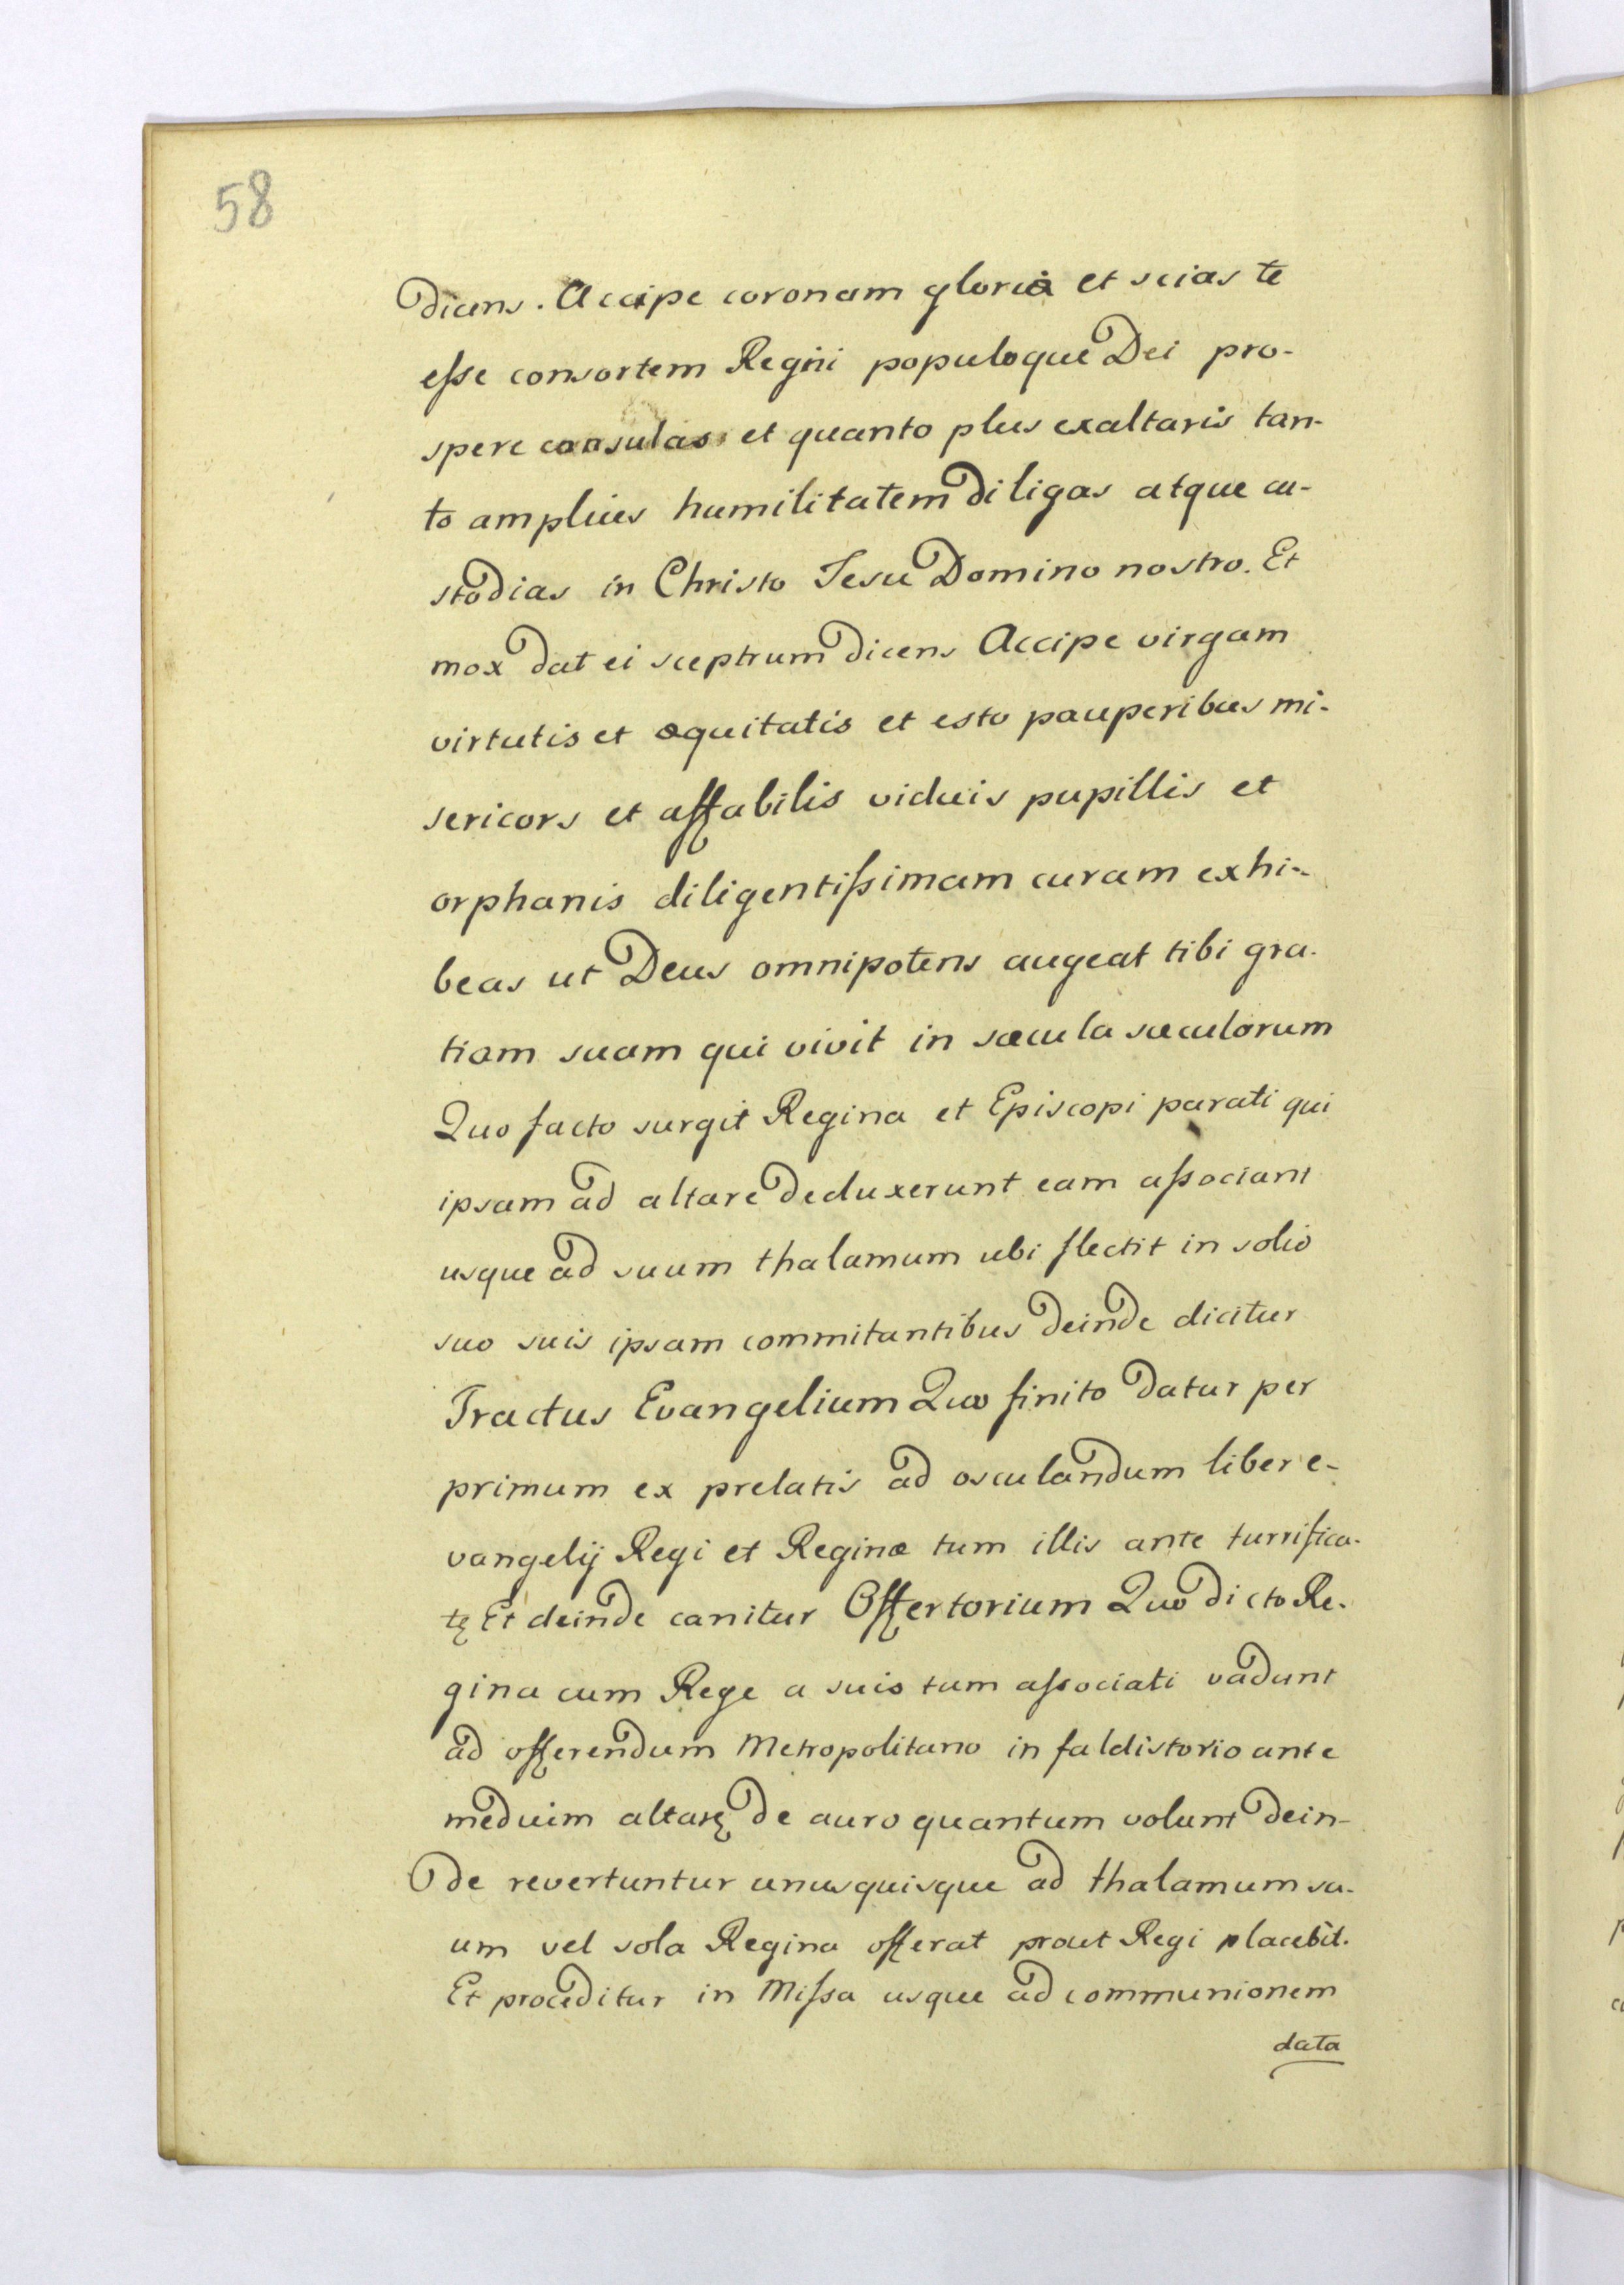 58
dicens. Accipe coronam gloriæ et scias te
esse consortem Regni populoque Dei pro-
spere consulas et quanto plus exaltaris tan-
to amplius humilitatem diligas atque cu-
stodias in Christo Iesu Domino nostro. Et
mox dat ei sceptrum dicens Accipe virgam
virtutis et æquitatis et esto pauperibus mi-
sericors et affabilis viduis pupillis et
orphanis diligentissimam curam exhi-
beas ut Deus omnipotens augeat tibi gra-
tiam suam qui vivit in sæcula sæculorum
Quo facto surgit Regina et Episcopi parati qui
ipsam ad altare deduxerunt eam associant
usque ad suum thalamum ubi flectit in solio
suo suis ipsam commitantibus deinde dicitur
Tractus Evangelium Quo finito datur per
primum ex prelatis ad osculandum liber e-
vangelij Regi et Reginæ tum illis ante turrifica-
tę Et deinde canitur Offertorium Quo dicto Re-
gina cum Rege a suis tum associati vadunt
ad offerendum Metropolitano in faldistorio ante
medium altarę de auro quantum volunt dein-
de revertuntur unusquisque ad thalamum su-
um vel sola Regina offerat prout Regi placebit.
Et proceditur in Missa usque ad communionem
data